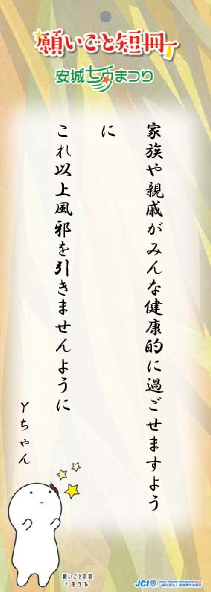 願いごと短冊
安城七夕まつり
家族や親戚がみんな健康的に過ごせますよう
に
これ以上風邪を引きませんように
Yちゃん
願いごと短冊
JCI